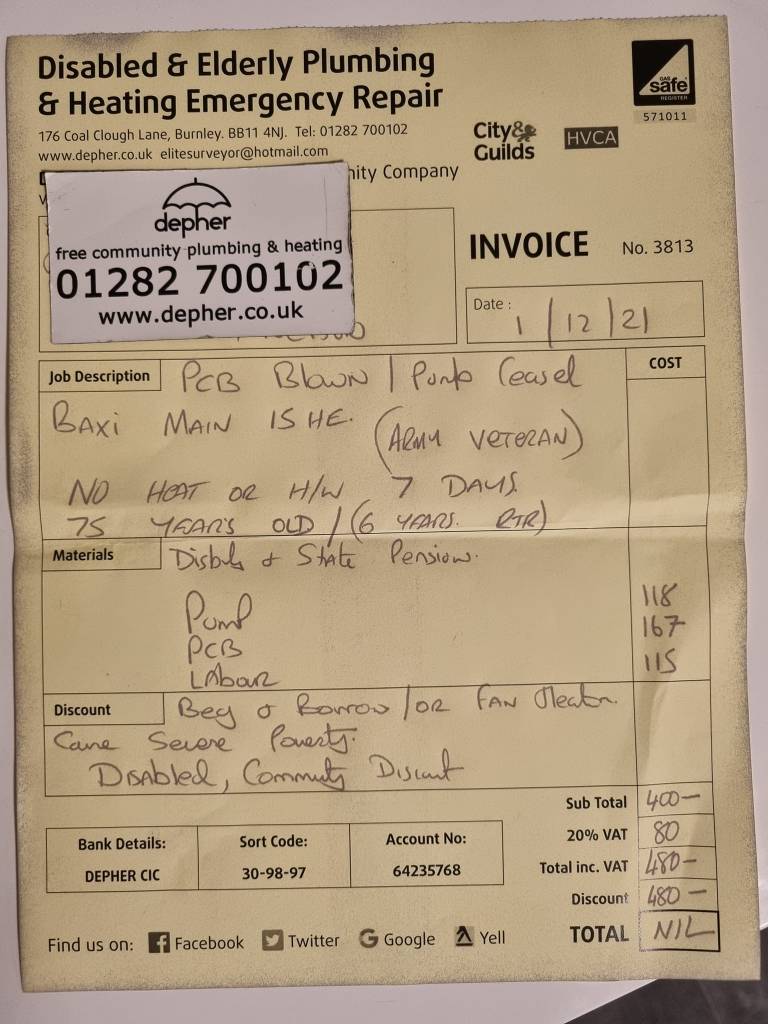 Disabled & Elderly Plumbing
& Heating Emergency Repair
176 Coal Clough Lane, Burnley. BB11 4NJ. Tel: 01282 700102
www.depher.co.uk elitesurveyor@hotmail.com
Company
GAS
safe
REGISTER
571011
City&
Guilds
HVCA
depher
free community plumbing & heating
01282 700102
www.depher.co.uk
INVOICE No. 3813
Date : 1/12/21
Job Description PCB Blown / Pump Ceased COST
BAXI MAIN 15 HE. (ARMY VETERAN)
NO HEAT OR H/W 7 DAYS.
75 YEARS OLD / (6 YEARS. RTR)
Materials & State Pension.
Pump 118
PCB 167
Labour 115
Discount Beg & Borrow / OR FAN Heater.
Severe Poverty.
DISABLED, Discount
Sub Total 400-
20% VAT 80
Total inc. VAT 480-
Discount 480-
TOTAL NIL
Bank Details: Sort Code: Account No:
DEPHER CIC 30-98-97 64235768
Find us on: Facebook Twitter Google Yell